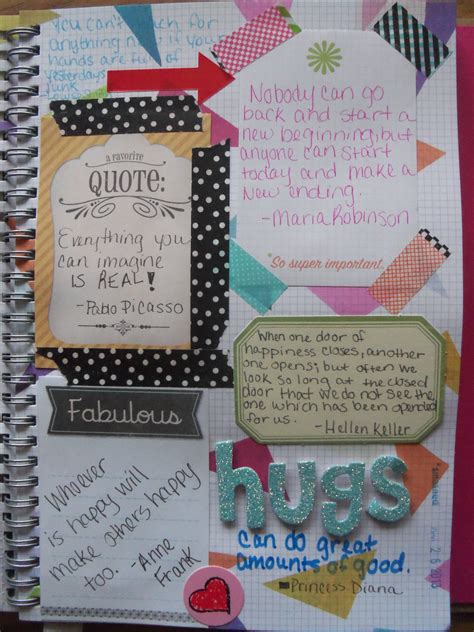 You can't reach for
anything new if your
hands are full of
yesterdays
junk
Nobody can go
back and start a
new beginning, but
anyone can start
today and make a
New ending.
-Maria Robinson
*So super important.
a favorite
QUOTE:
Everything you
can imagine
IS REAL!
- Pablo Picasso
When one door of
happiness closes, another
one opens; but often we
look so long at the closed
door that we do not see the
one which has been opended
for us.
- Hellen Keller
Fabulous
Whoever
is happy will
make others happy
too. -Anne
Frank
hugs
can do great
amounts of good.
Princess Diana